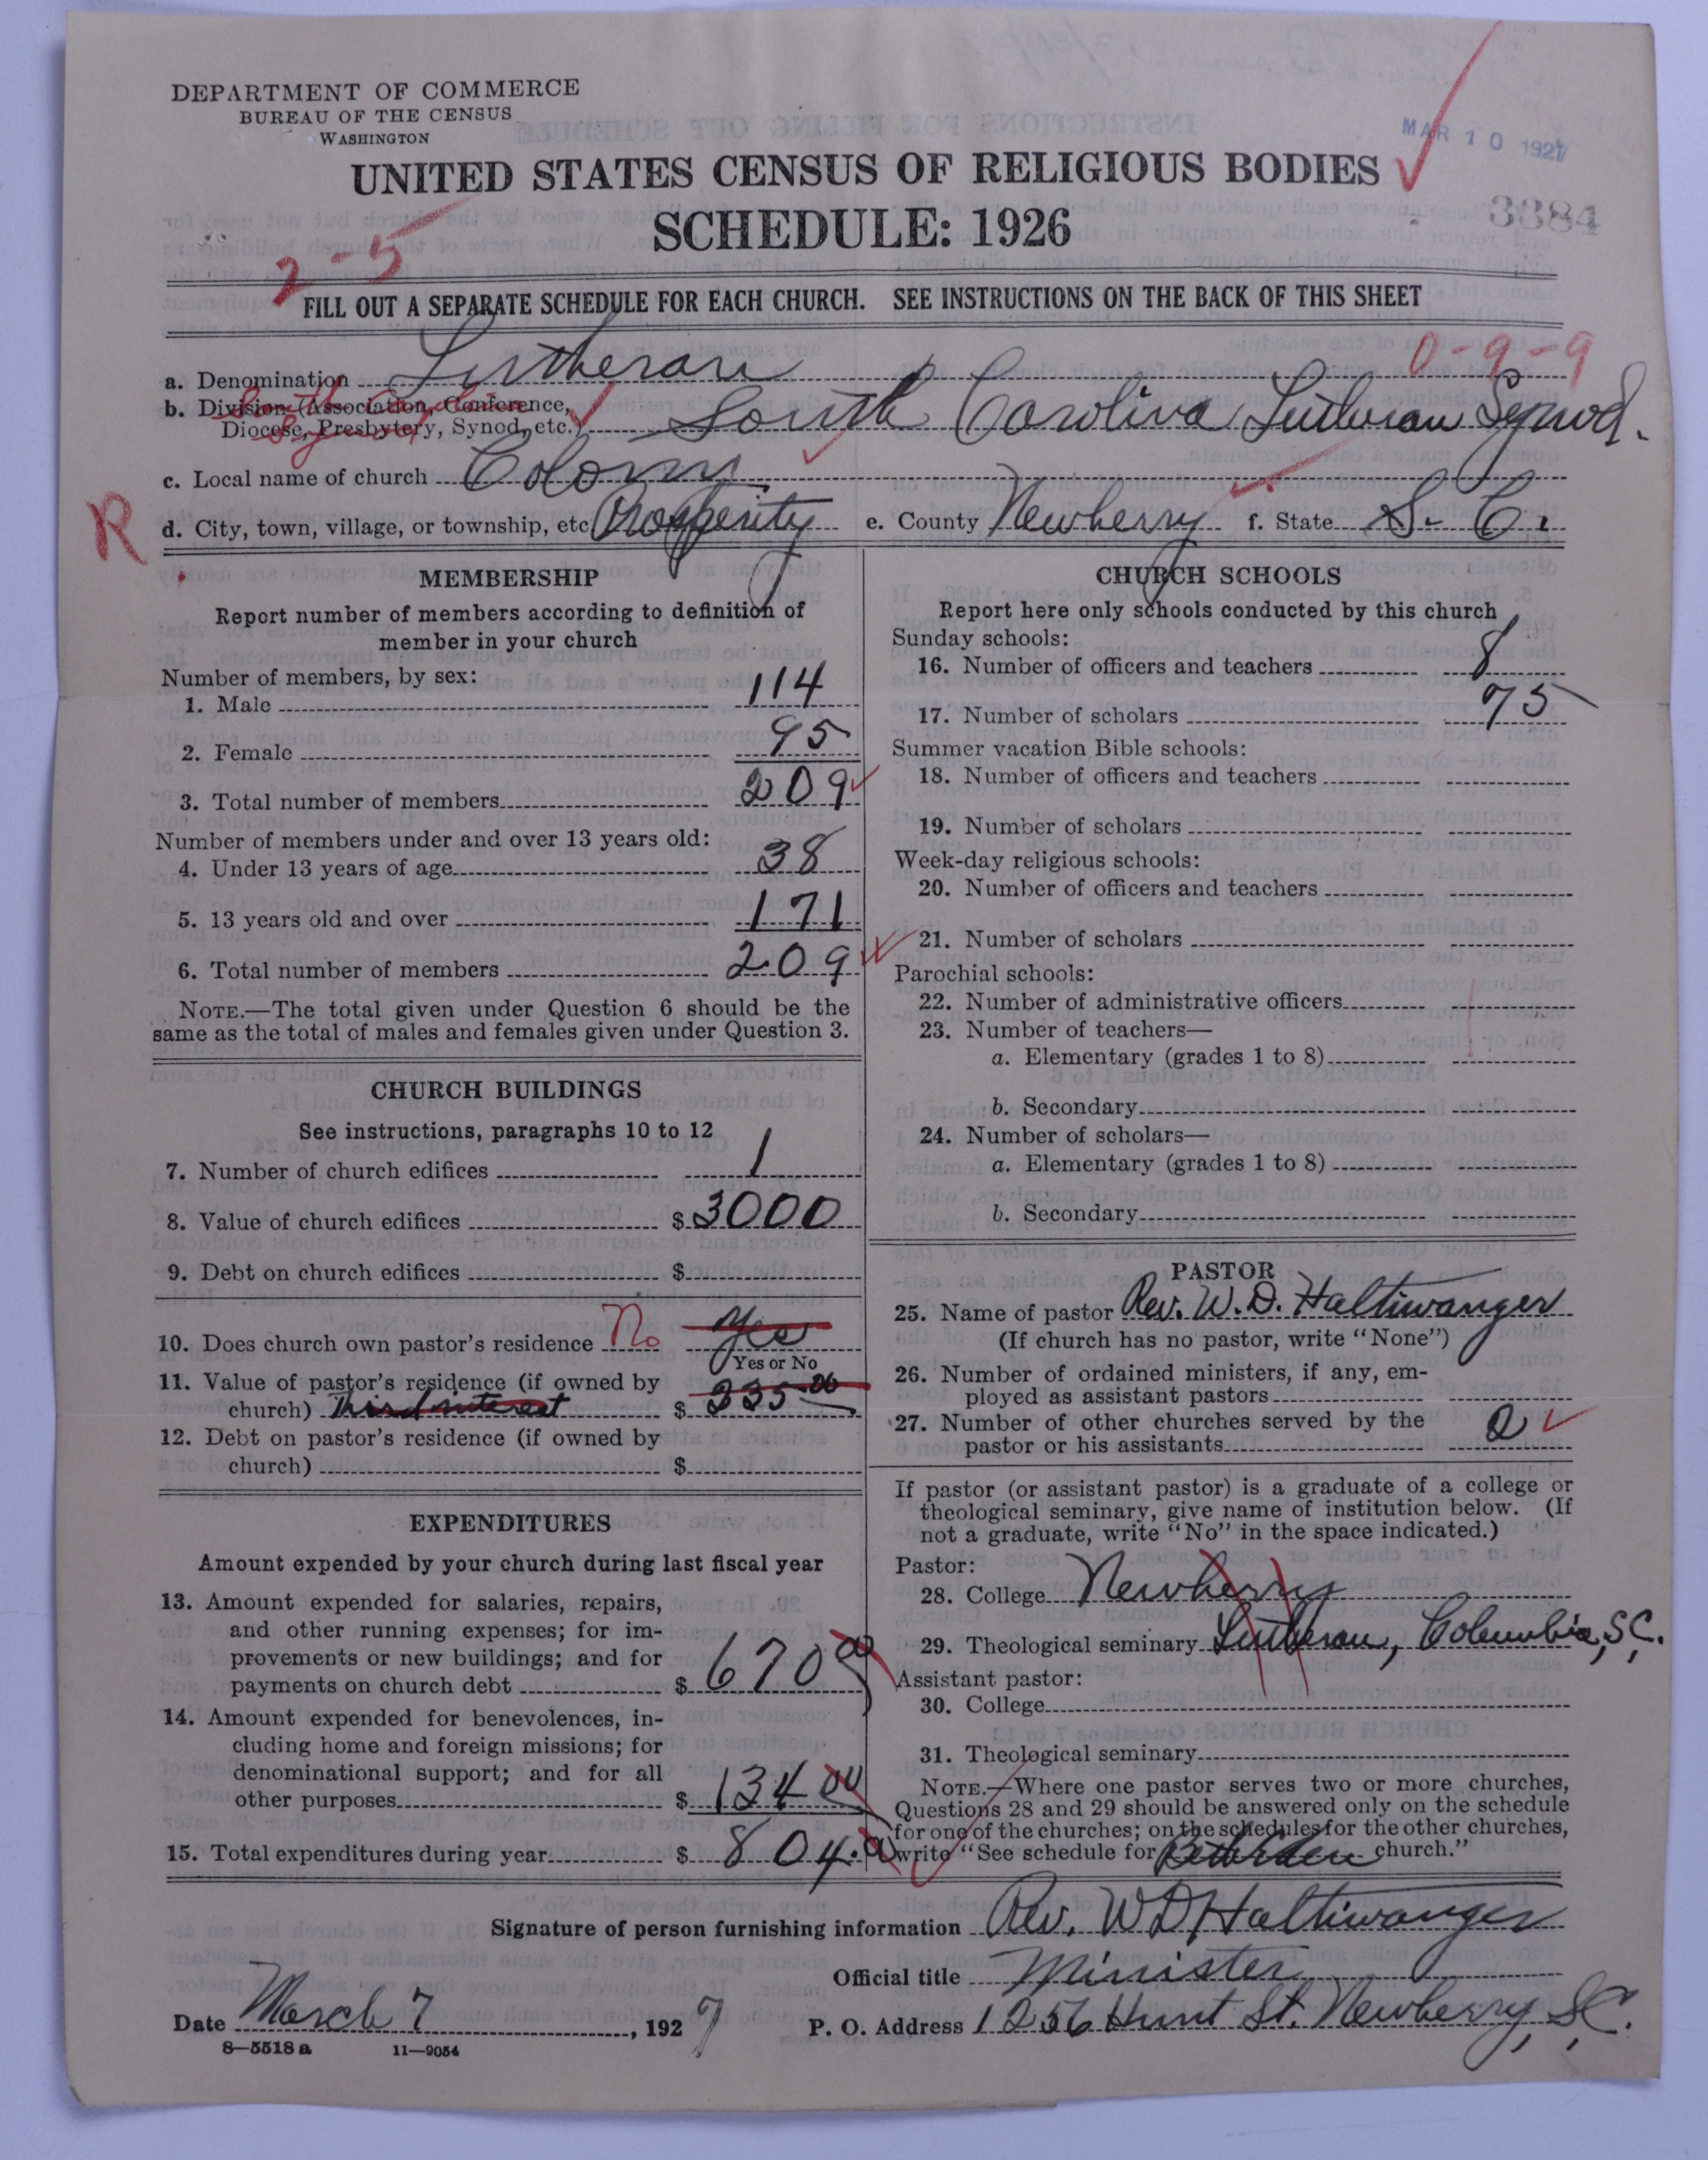 DEPARTMENT OF COMMERCE
BUREAU OF THE CENSUS
WASHINGTON
MAR 10 1927
UNITED STATES CENSUS OF RELIGIOUS BODIES
3884
SCHEDULE: 1926
2-5
FILL OUT A SEPARATE SCHEDULE FOR EACH CHURCH. SEE INSTRUCTIONS ON THE BACK OF THIS SHEET
0-9-9
a. Denomination Lutheran
b. Division (Association, Conference, Diocese, Presbytery, Synod, etc.) South Carolina Lutheran Synod.
South Carolina Synod
c. Local name of church Colony
R
d. City, town, village, or township, etc Prosperity e. County Newberry f. State S. C.
MEMBERSHIP
Report number of members according to definition of
member in your church
Number of members, by sex:
1. Male 114
2. Female 95
3. Total number of members 209
Number of members under and over 13 years old:
4. Under 13 years of age 38
5. 13 years old and over 171
6. Total number of members 209
NOTE.—The total given under Question 6 should be the
same as the total of males and females given under Question 3.
CHURCH BUILDINGS
See instructions, paragraphs 10 to 12
7. Number of church edifices 1
8. Value of church edifices $ 3000
9. Debt on church edifices $
10. Does church own pastor's residence No Yes
Yes or No
11. Value of pastor's residence (if owned by
church) Third interest $ 335.00
12. Debt on pastor's residence (if owned by
church) $
EXPENDITURES
Amount expended by your church during last fiscal year
13. Amount expended for salaries, repairs,
and other running expenses; for im-
provements or new buildings; and for
payments on church debt $ 670 00
14. Amount expended for benevolences, in-
cluding home and foreign missions; for
denominational support; and for all
other purposes $ 134 00
15. Total expenditures during year $ 804.00
CHURCH SCHOOLS
Report here only schools conducted by this church
Sunday schools:
16. Number of officers and teachers 8
17. Number of scholars 75
Summer vacation Bible schools:
18. Number of officers and teachers
19. Number of scholars
Week-day religious schools:
20. Number of officers and teachers
21. Number of scholars
Parochial schools:
22. Number of administrative officers
23. Number of teachers—
a. Elementary (grades 1 to 8)
b. Secondary
24. Number of scholars—
a. Elementary (grades 1 to 8)
b. Secondary
PASTOR
25. Name of pastor Rev. W. D. Haltiwanger
(If church has no pastor, write "None")
26. Number of ordained ministers, if any, em-
ployed as assistant pastors
27. Number of other churches served by the
pastor or his assistants 2
If pastor (or assistant pastor) is a graduate of a college or
theological seminary, give name of institution below. (If
not a graduate, write "No" in the space indicated.)
Pastor:
28. College Newberry
29. Theological seminary Lutheran, Columbia, S.C.
Assistant pastor:
30. College
31. Theological seminary
NOTE.—Where one pastor serves two or more churches,
Questions 28 and 29 should be answered only on the schedule
for one of the churches; on the schedules for the other churches,
write "See schedule for church."
Signature of person furnishing information Rev. W D Haltiwanger
Official title Minister
Date March 7, 1927 P. O. Address 1256 Hunt St. Newberry, S.C.
8—5518 a 11—9054